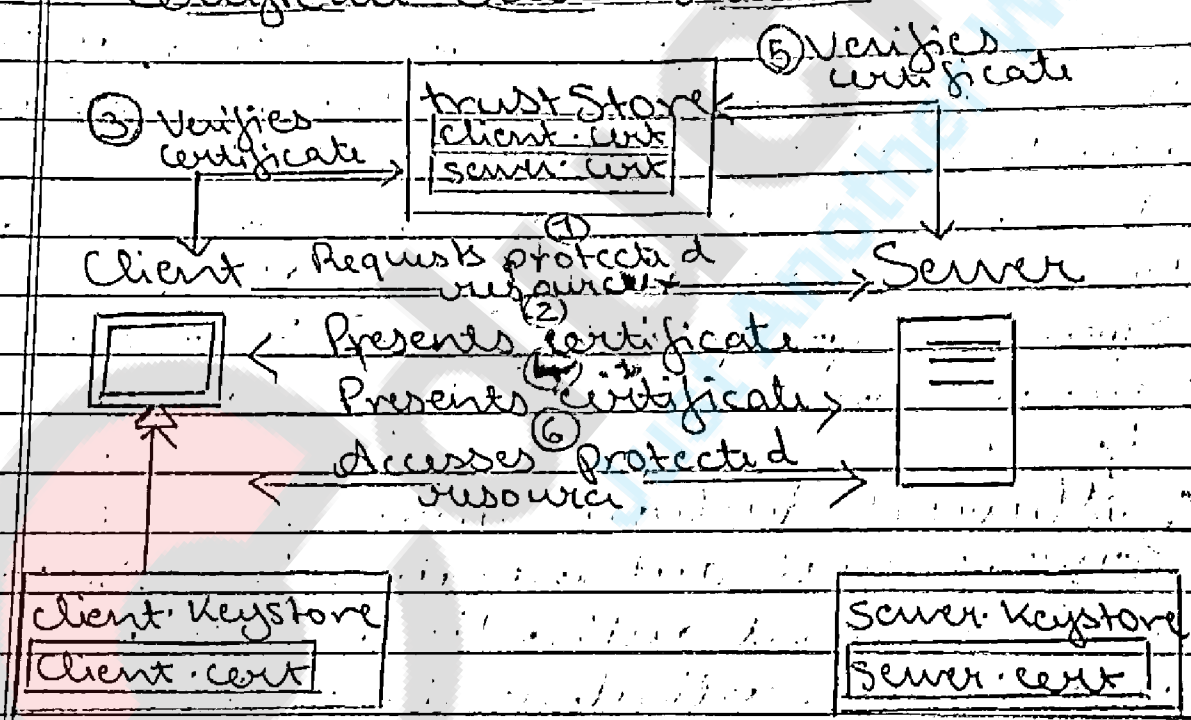 ⑤ Verifies
certificate
trustStore
③ Verifies
certificate
client.cert
server.cert
①
Client Requests protected Server
resource
②
Presents certificate
Presents certificate
⑥
Accesses protected
resource
client.Keystore
Client.cert
Server.Keystore
Server.cert